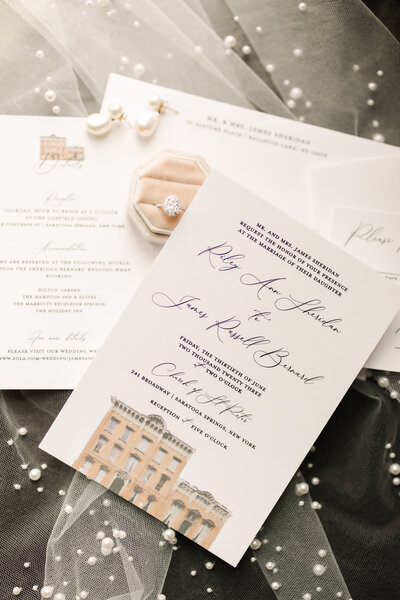 MR. & MRS. JAMES SHERIDAN
Details
Reception
COCKTAIL HOUR TO BEGIN AT 5 O'CLOCK
THE CANFIELD CASINO
CONGRESS ST | SARATOGA SPRINGS, NEW YORK
Accommodations
ARE RESERVED AT THE FOLLOWING HOTELS.
MENTION THE SHERIDAN-BERNARD WEDDING WHEN
BOOKING.
HILTON GARDEN
THE HAMPTON INN & SUITES
THE MARRIOTT EXCELSIOR SPRINGS
THE HOLIDAY INN
For more details
PLEASE VISIT OUR WEDDING
Please
MR. AND MRS. JAMES SHERIDAN
REQUEST THE HONOR OF YOUR PRESENCE
AT THE MARRIAGE OF THEIR DAUGHTER
Riley Ann Sheridan
to
James Russell Bernard
FRIDAY, THE THIRTIETH OF JUNE
TWO THOUSAND TWENTY THREE
AT TWO O'CLOCK
Church of St. Peter
241 BROADWAY | SARATOGA SPRINGS, NEW YORK
RECEPTION AT FIVE O'CLOCK